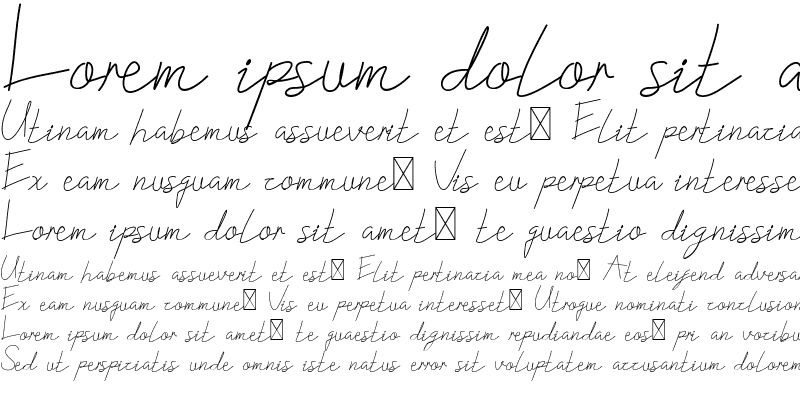 Lorem ipsum dolor sit a
Utinam habemus assueverit et est☒ Elit pertinacia
Ex eam nusquam commune☒ Vis eu perpetua interesse
Lorem ipsum dolor sit amet☒ te quaestio dignissim
Utinam habemus assueverit et est☒ Elit pertinacia mea no☒ At eleifend adversa
Ex eam nusquam commune☒ Vis eu perpetua interesset☒ Utroque nominati conclusion
Lorem ipsum dolor sit amet☒ te quaestio dignissim repudiandae eos☒ pri an vocibu
Sed ut perspiciatis unde omnis iste natus error sit voluptatem accusantium dolorem